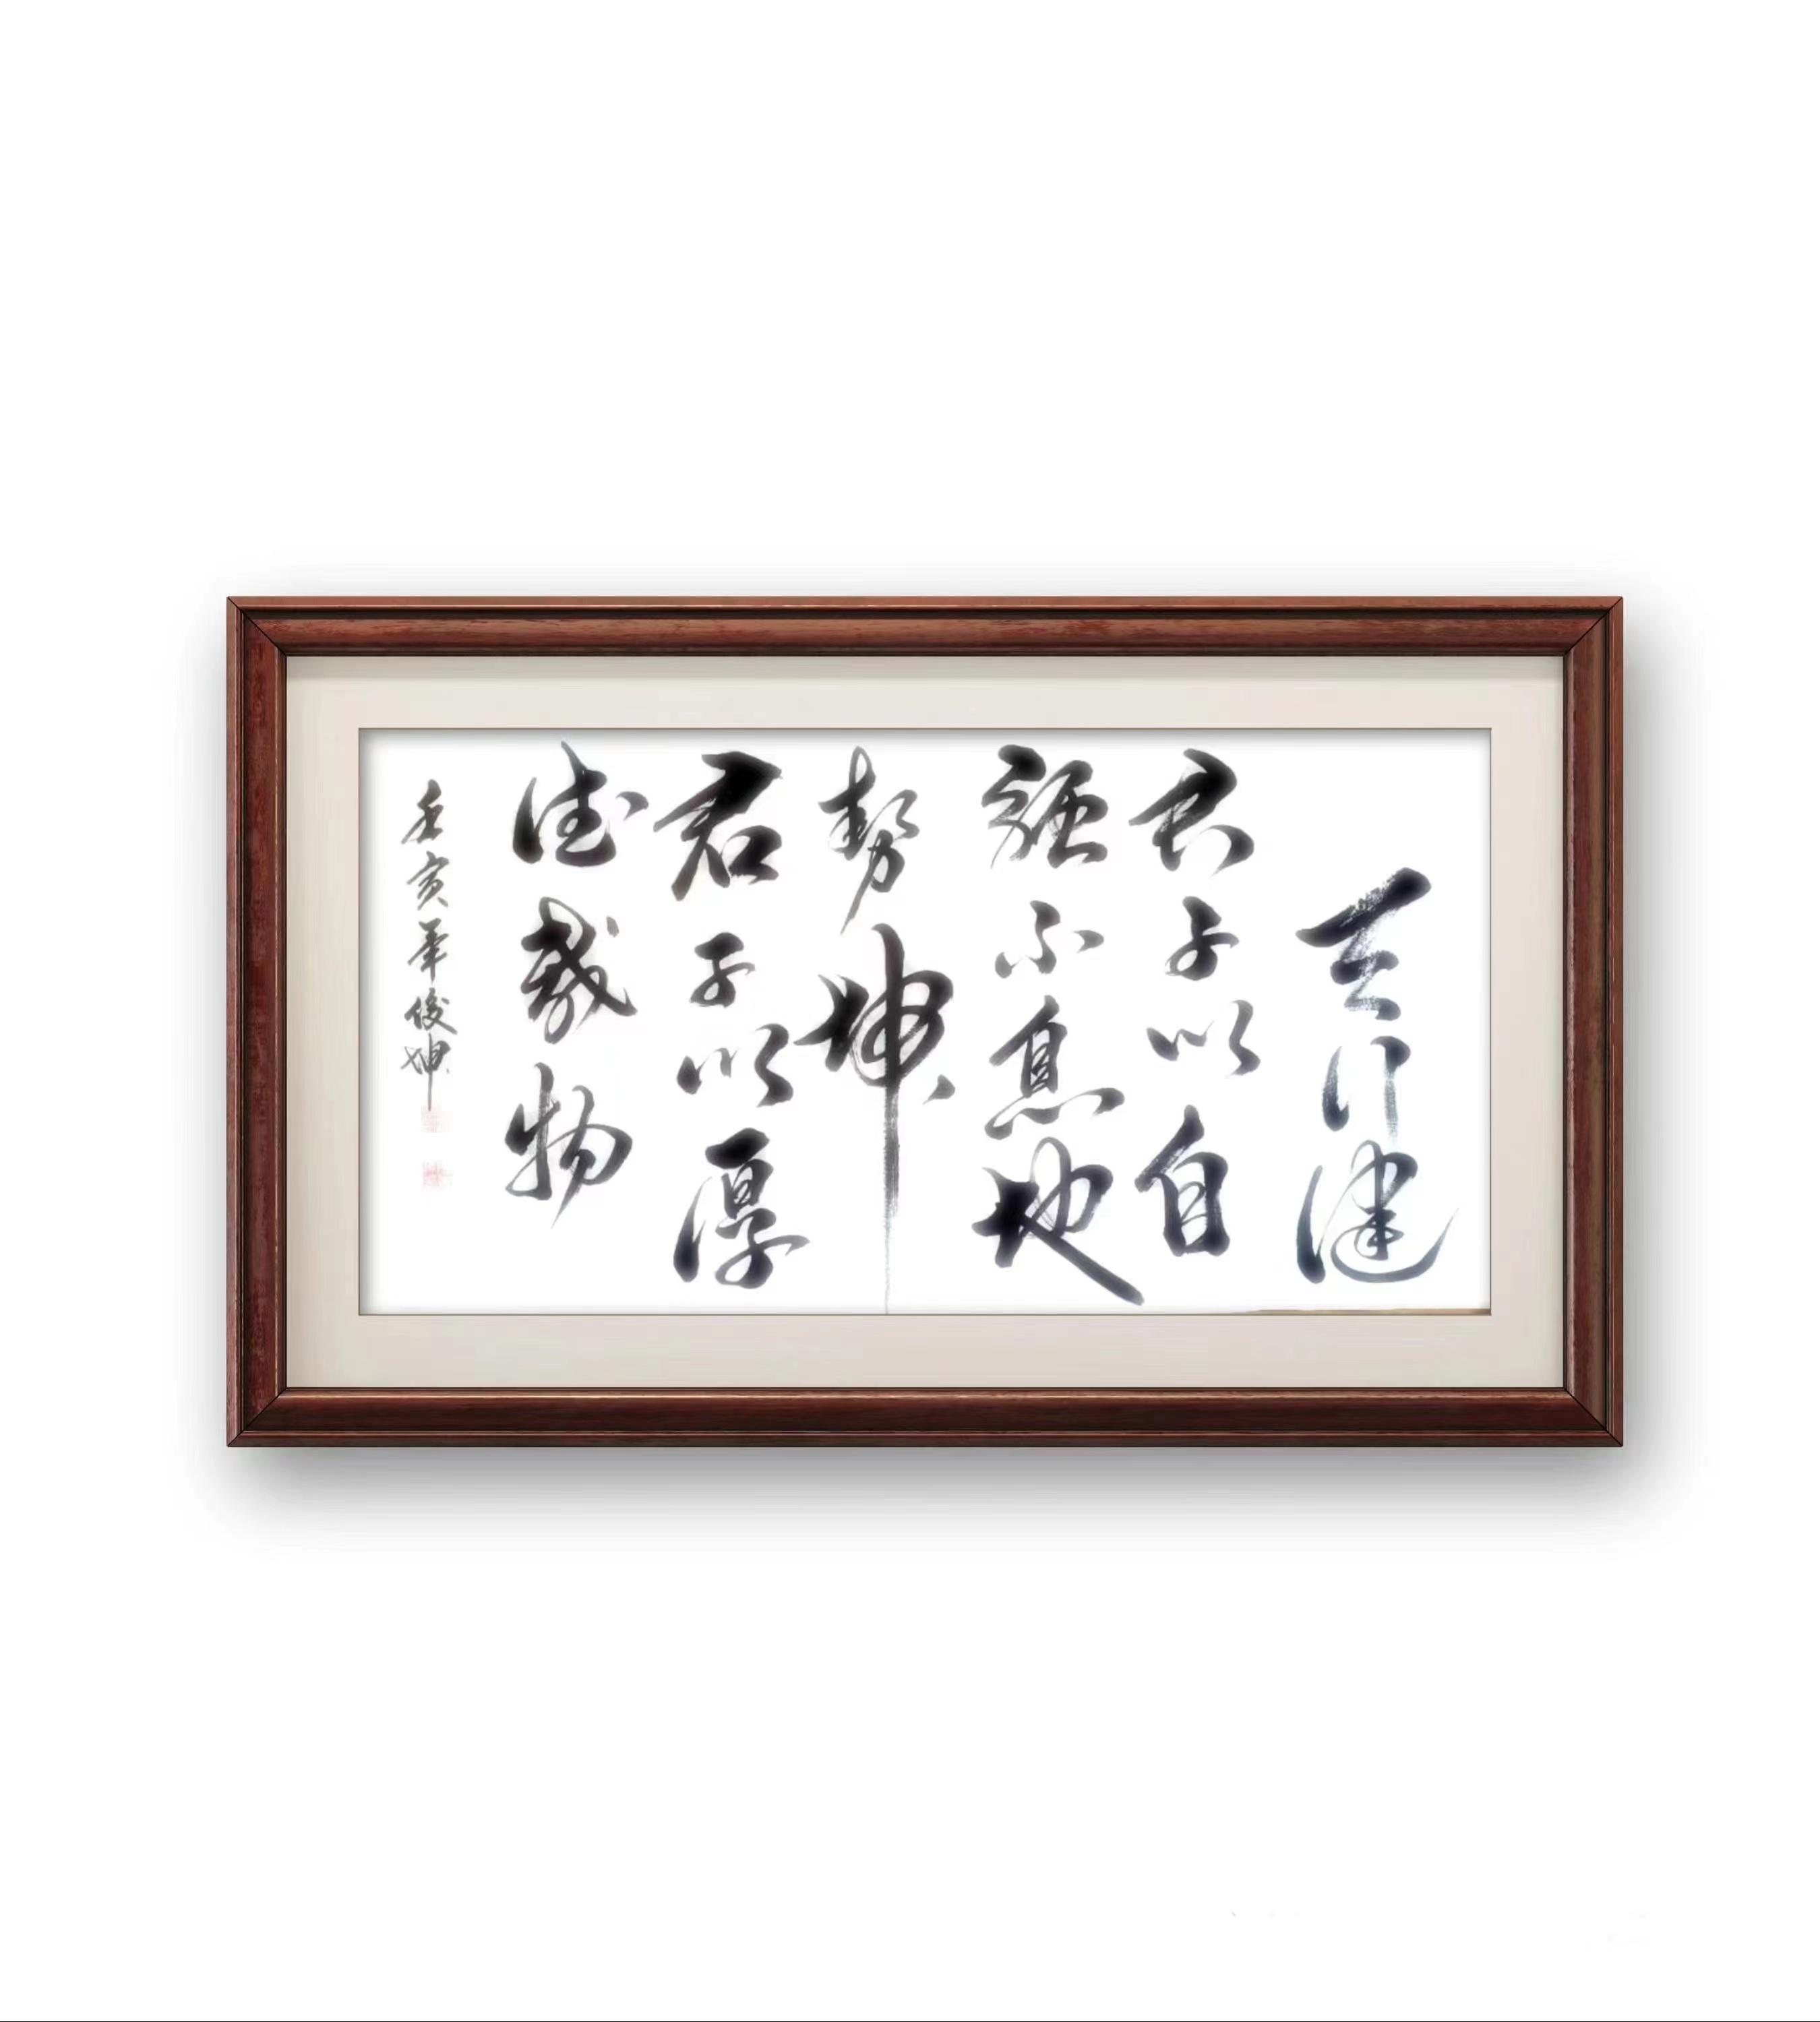 天行健
君子以自
強不息地
勢坤
君子以厚
德載物
壬寅年俊坤